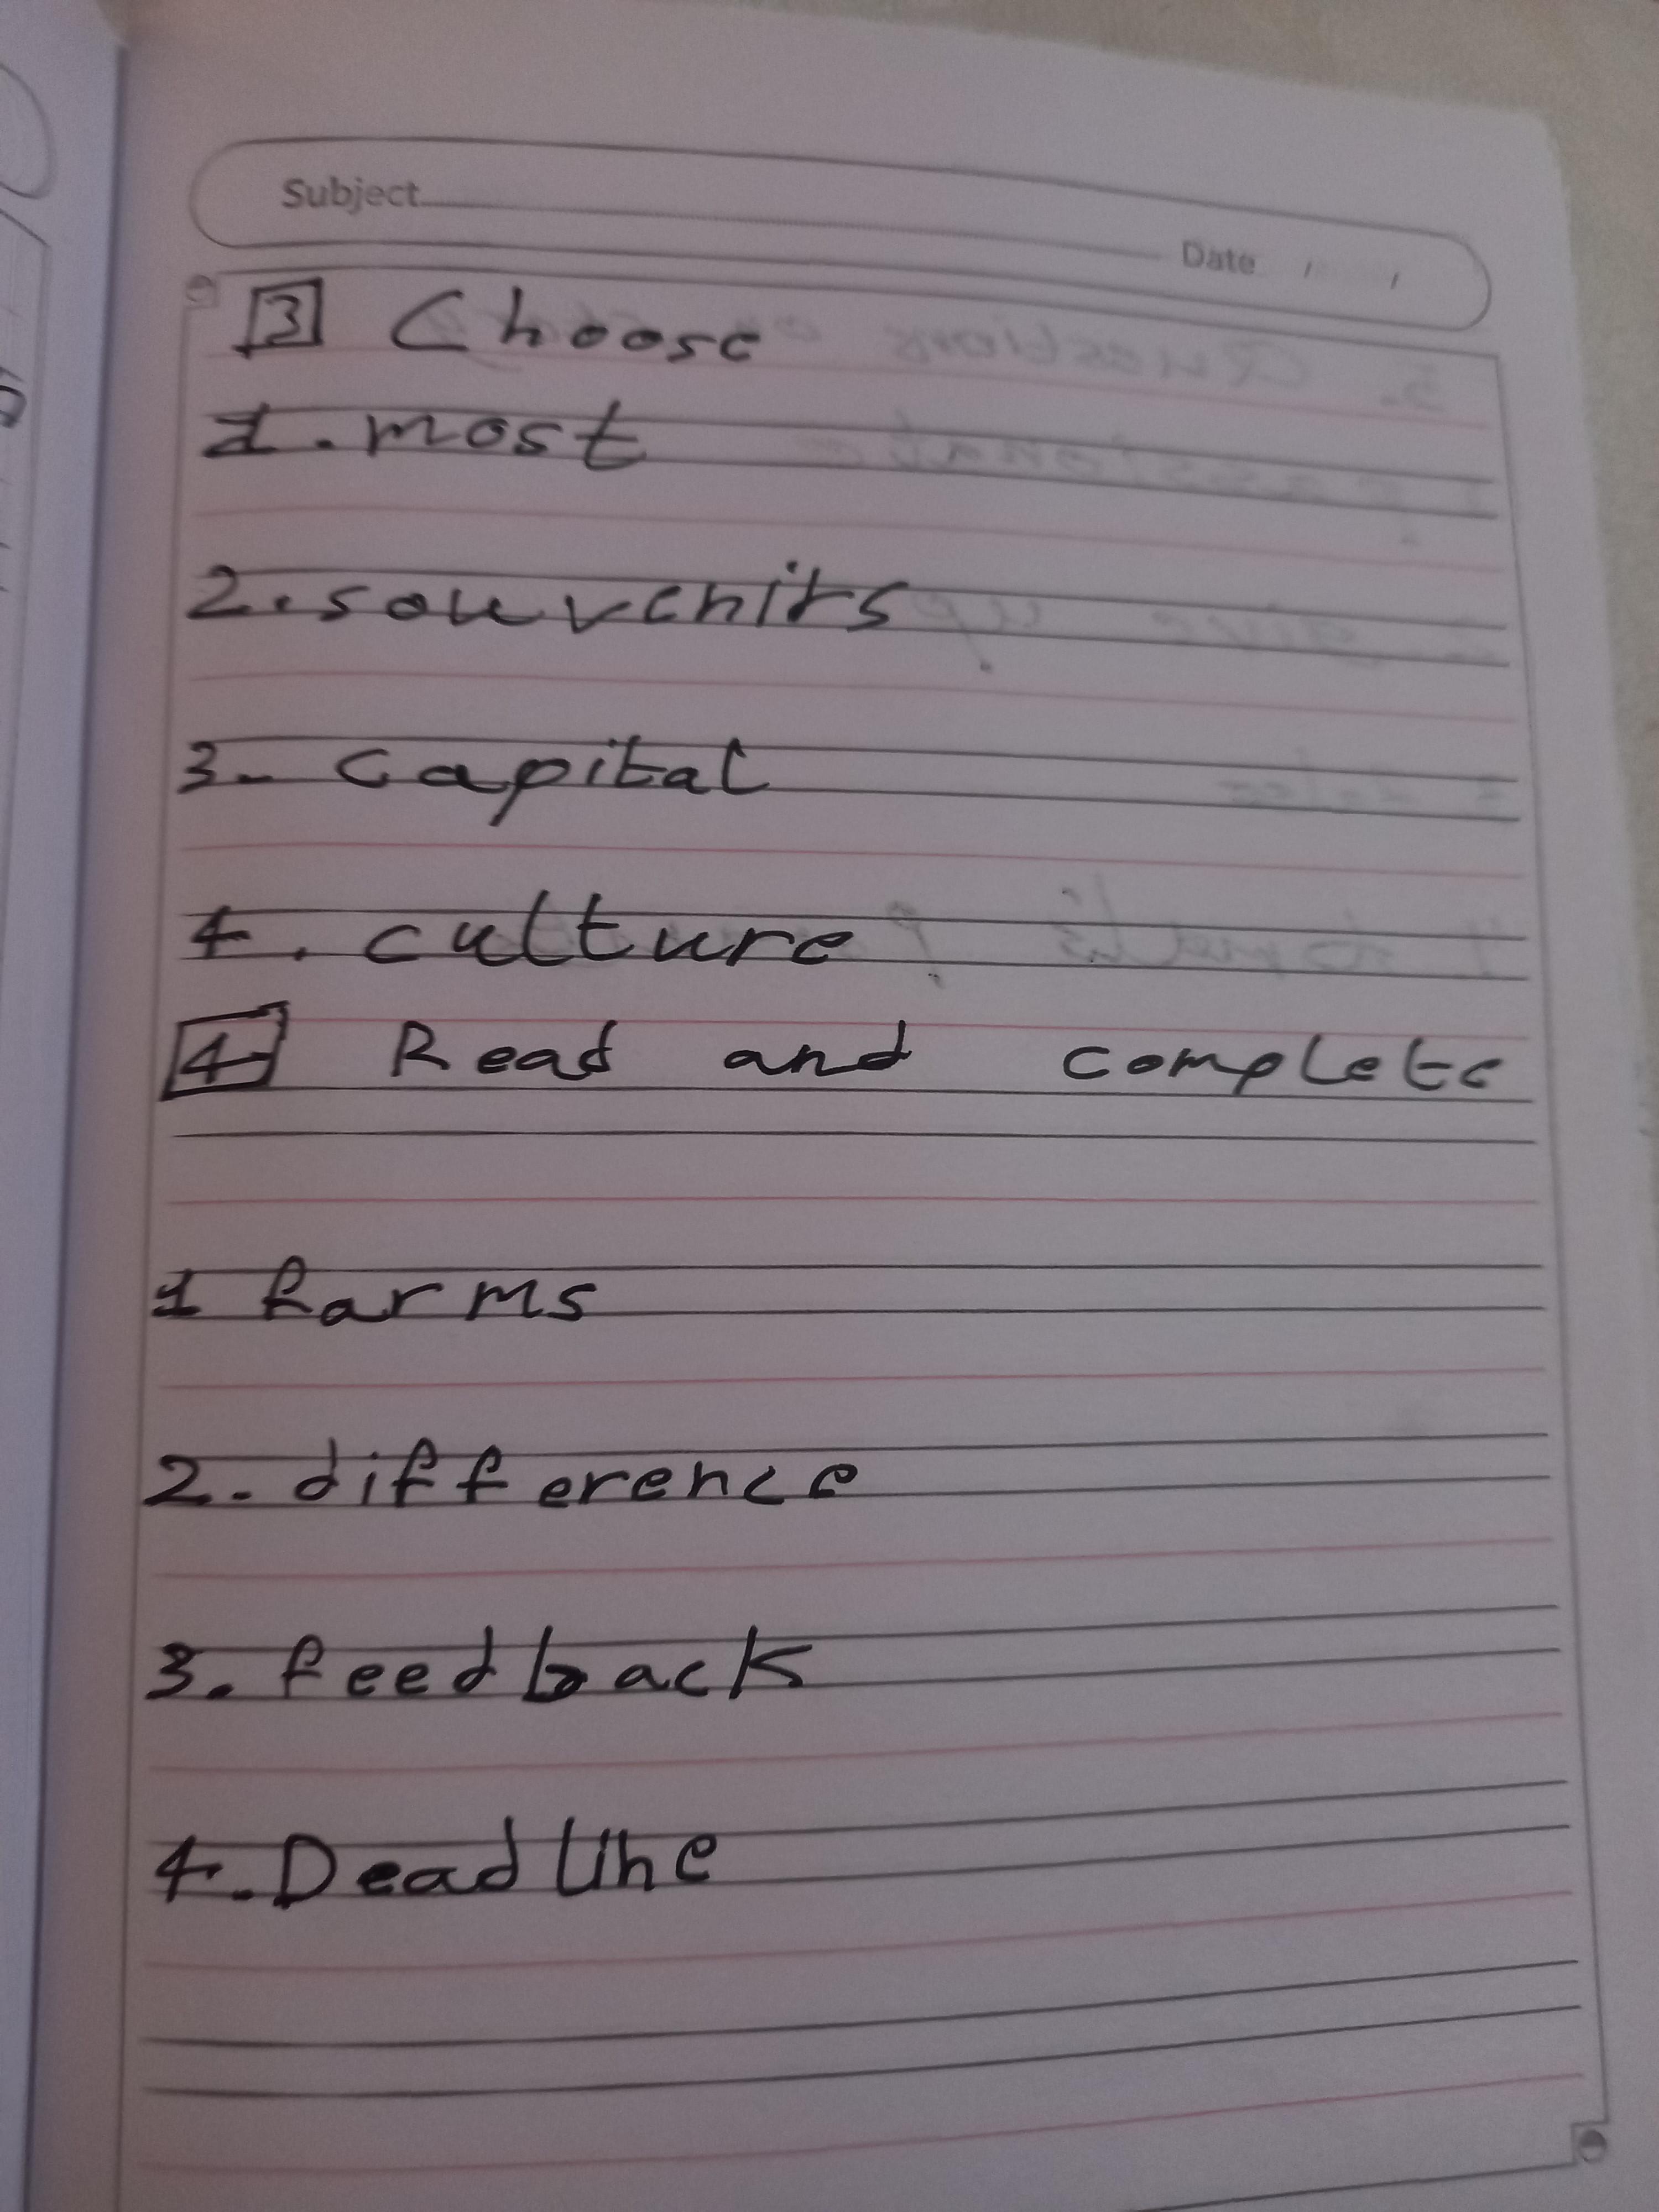 Subject
Date / /
3 Choose
1. most
2. souvenirs
3- capital
4. culture
4 Read and complete
1 farms
2. difference
3. feedback
4. Deadline